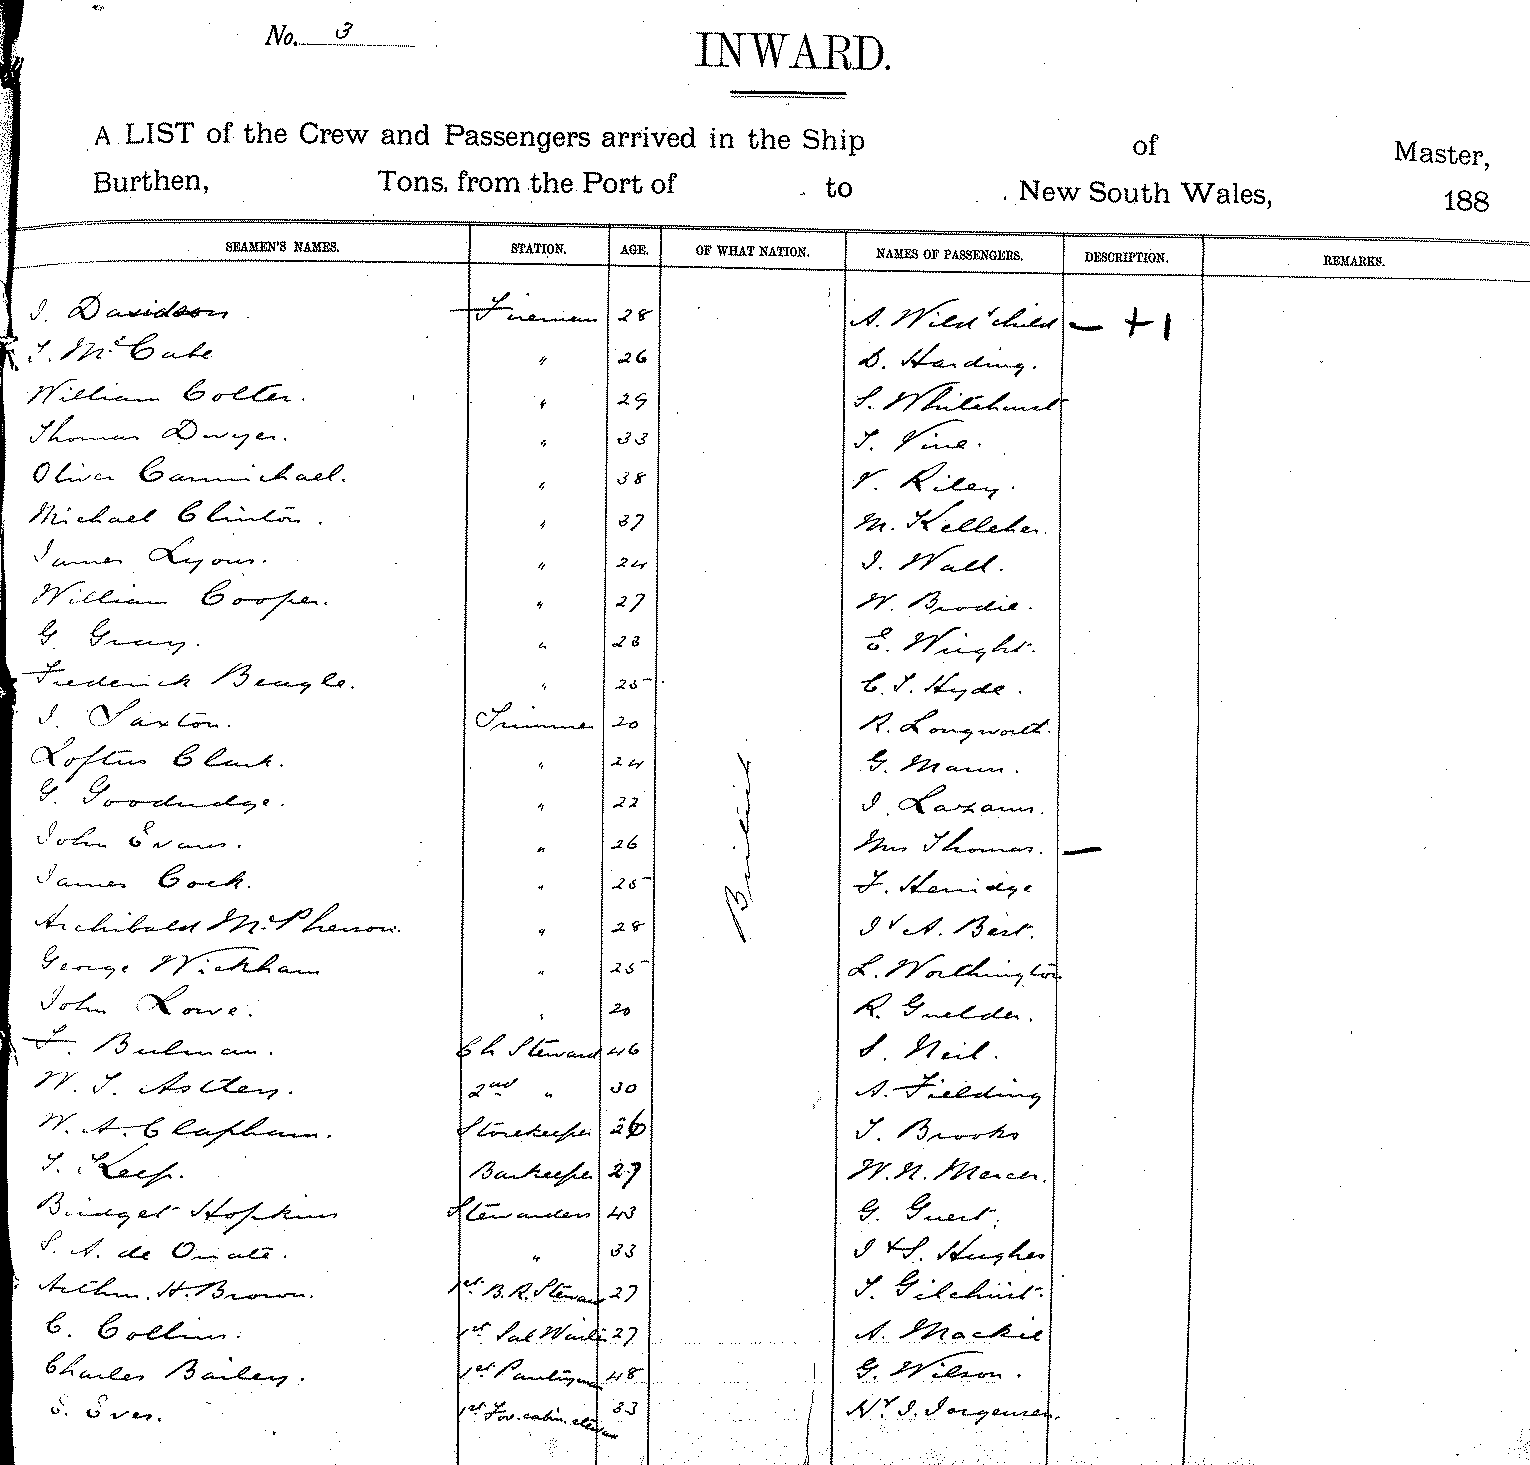 No. 3
INWARD.
A LIST of the Crew and Passengers arrived in the Ship of Master,
Burthen, Tons, from the Port of to New South Wales, 188
SEAMEN'S NAMES. STATION. AGE. OF WHAT NATION. NAMES OF PASSENGERS. DESCRIPTION. REMARKS.
J. Davidson Fireman 28 A. Wild & child — +1
T. McCabe " 26 D. Harding.
William Colter. " 29 S. Whitehurst
Thomas Dwyer. " 33 T. Vine.
Oliver Carmichael. " 38 V. Riley.
Michael Clinton. " 37 M. Kelleher.
James Lyons. " 24 J. Wall.
William Cooper. " 27 W. Brodie.
G. Gray. " 23 E. Wright.
Frederick Beagle. " 25 C. J. Hyde.
J. Saxton. Trimmer 20 R. Longworth.
Loftus Clark. " 24 G. Mann.
G. Goodridge. " 22 J. Lazarus.
John Evans. " 26 Mrs Thomas. —
James Cock. " 25 F. Herridge
Archibald McPherson. " 28 J & A. Best.
George Wickham " 25 L. Worthington
John Lowe. " 20 R. Guelder.
British
F. Bulman. Ch Steward 46 S. Neil.
W. T. Astley. 2nd " 30 A. Fielding
W. A. Clapham. Storekeeper 26 T. Brooks
T. Keep. Barkeeper 27 W. N. Mercer.
Bridget Hopkins Stewardess 43 G. Guest.
S. A. de Oriate. " 33 J & S. Hughes
Arthur. H. Brown. 1st B. R. Steward 27 T. Gilchrist.
C. Collins. 1st Sal Waiter 27 A. Mackie
Charles Bailey. 1st Pantryman 48 G. Wilson.
E. Eves. 1st For. cabin steward 33 N. J. Jorgensen.